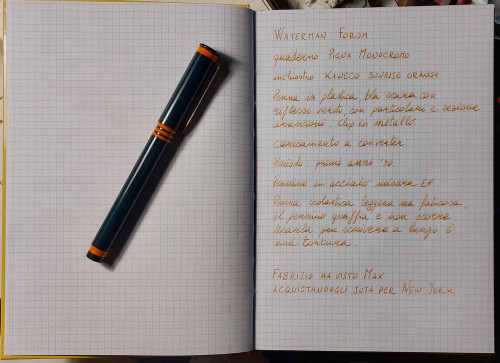 WATERMAN FORUM
quaderno PIGNA MONOCROMO
inchiostro KAWECO SUNRISE ORANGE
Penna in plastica, blu scuro con
riflessi verdi, con particolari e sezione
arancioni. Clip in metallo.
caricamento a converter
Periodo primi anni '90.
Pennino in acciaio misura EF
Penna scolastica leggera ma faticosa,
il pennino graffia e non scorre.
Usarla per scrivere a lungo è
una tortura.
FABRIZIO HA VISTO MAX
ACQUISTANDOGLI JUTA PER NEW YORK